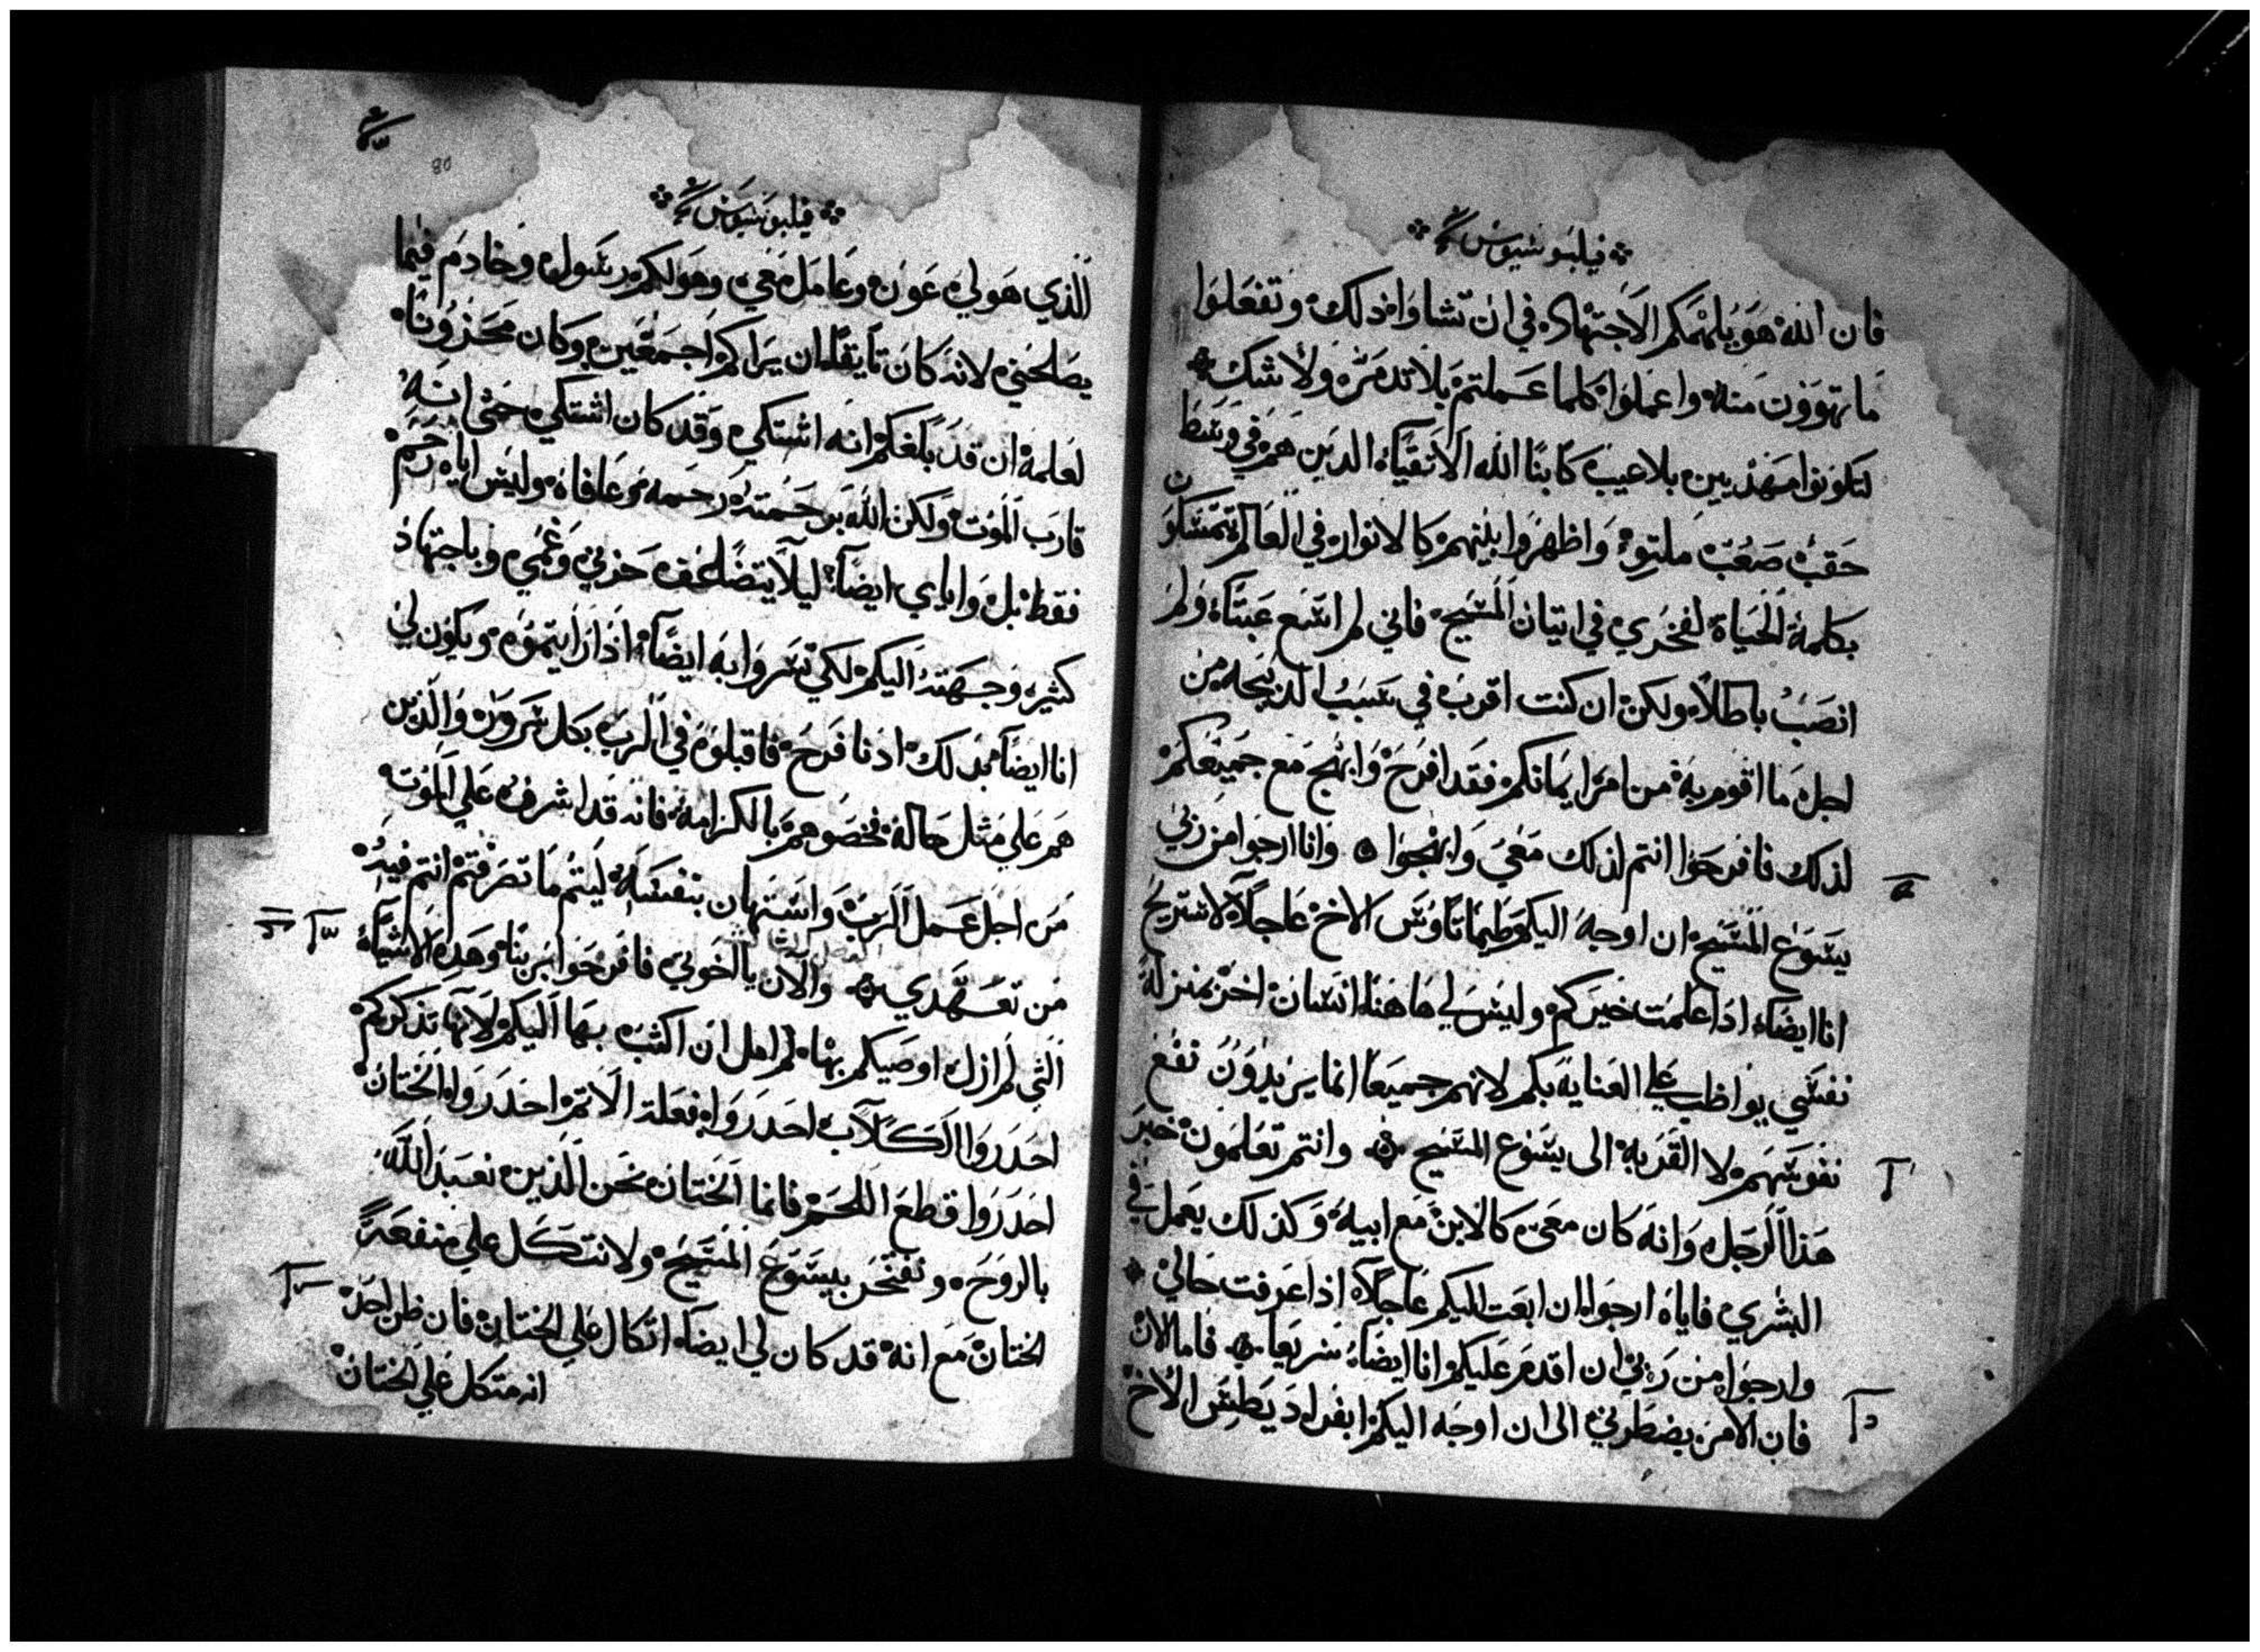 فيلبوسيوس
فان الله هو يلهمكم الاجتهاد في ان تشاوا ذلك وتفعلوا
ما تهوون منه واعملوا كلما عملتم بلا تدمر ولا شك
لتكونوا مهذبين بلا عيب كابنا الله الاتقياء الدين هم في وسط
حقب صعب ملتو واظهروا بينهم كالانوار في العالم تمسكون
بكلمة الحياة لفخري في اتيان المسيح فاني لم اسع عبتا ولم
انصب باطلا ولكن ان كنت اقرب في سبب الذبيحه من
اجل ما اقوم به من امر ايمانكم فقد افرح وابتهج مع جميعكم
لذلك فافرحوا انتم لذلك معي وابتهجوا وانا ارجوا من ربي
يسوع المسيح ان اوجه اليكم طيماتاوس الاخ عاجلا لاستريح
انا ايضا ادا علمت خبركم وليس لي هاهنا انسان اخر بمنزلة
نفسي يواظب علي العنايه بكم لانهم جميعا انما يريدون نفع
نفوسهم لا القربه الى يسوع المسيح وانتم تعلمون خبر
هذا الرجل وانه كان معي كالابن مع ابيه وكذلك يعمل في
البشري فاياه ارجوا ان ابعت اليكم عاجلا اذا عرفت حالي
وارجوا من ربي ان اقدم عليكم انا ايضا سريعا فاما الان
فان الامر يضطرني الى ان اوجه اليكم ابفراد يطس الاخ
80
فيلبوسيوس
الذي هو لي عون وعامل معي وهو لكم رسول وخادم فيما
يصلحني لانه كان تايقا ان يراكم اجمعين وكان محزونا
لعلمه ان قد بلغكم انه اشتكي وقد كان اشتكي حتى انه
قارب الموت ولكن الله برحمته رحمه وعافاه وليس اياه رحم
فقط بل واياي ايضا ليلا يتضاعف حزني وغمي وباجتهاد
كثير وجهته اليكم لكي تسروا به ايضا اذا رايتموه ويكون لي
انا ايضا بدلك ادنا فرح فاقبلوه في الرب بكل سرور والذين
هم علي مثل حاله فخصوهم بالكرامه فانه قد اشرف علي الموت
من اجل عمل الرب واستهان بنفسه ليتم ما تصرفتم انتم فيه
من تعهدي والان يا اخوتي فافرحوا بربنا وهده الاشياء
التي لم ازل اوصيكم بها لم امل ان اكتب بها اليكم لانها تذكركم
احدروا الكلاب احدروا فعلة الاتم احدروا الختان
احدروا قطع اللحم فانما الختان نحن الذين نعبد الله
بالروح ونفتخر بيسوع المسيح ولا نتكل علي منفعة
الختان مع انه قد كان لي ايضا اتكال علي الختان فان ظن احد
انه متكل علي الختان